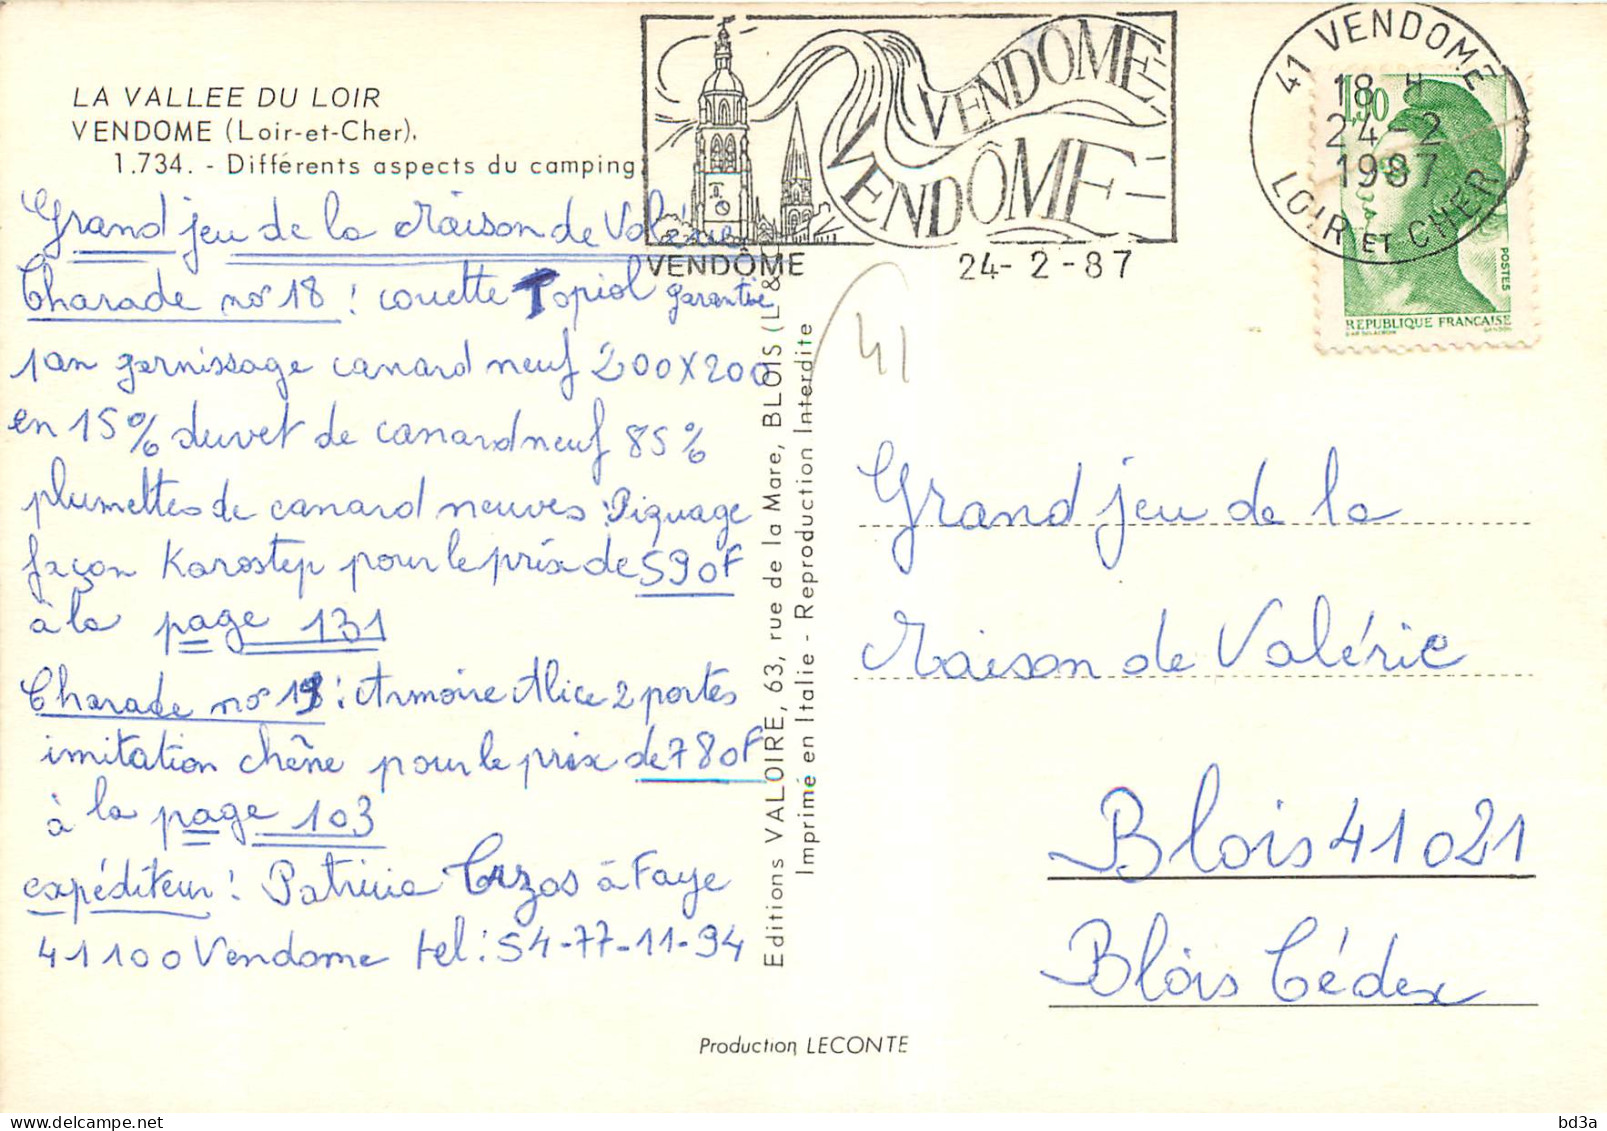 LA VALLEE DU LOIR
VENDOME (Loir-et-Cher).
1.734. - Différents aspects du camping
Grand jeu de la Maison de Valérie
Charade no 18 : couette Topiol garantie
1 an garnissage canard neuf 200X200
en 15% duvet de canard neuf 85%
plumettes de canard neuves : Piquage
façon Karostep pour le prix de 590F
à la page 131
Charade no 19 : Armoire Alice 2 portes
imitation chêne pour le prix de 780F
à la page 103
expéditeur : Patricia à Faye
41100 Vendome tel : 54-77-11-94
VENDÔME
VENDÔME
VENDÔME
24-2-87
41 VENDOME
18 H
24-2
1987
LOIR ET CHER
1,90
POSTES
REPUBLIQUE FRANCAISE
GANDON
41
Editions VALOIRE, 63, rue de la Mare, BLOIS (L &
Imprimé en Italie - Reproduction Interdite
Grand jeu de la
Maison de Valérie
Blois 41021
Blois Cédex
Production LECONTE
bd3a